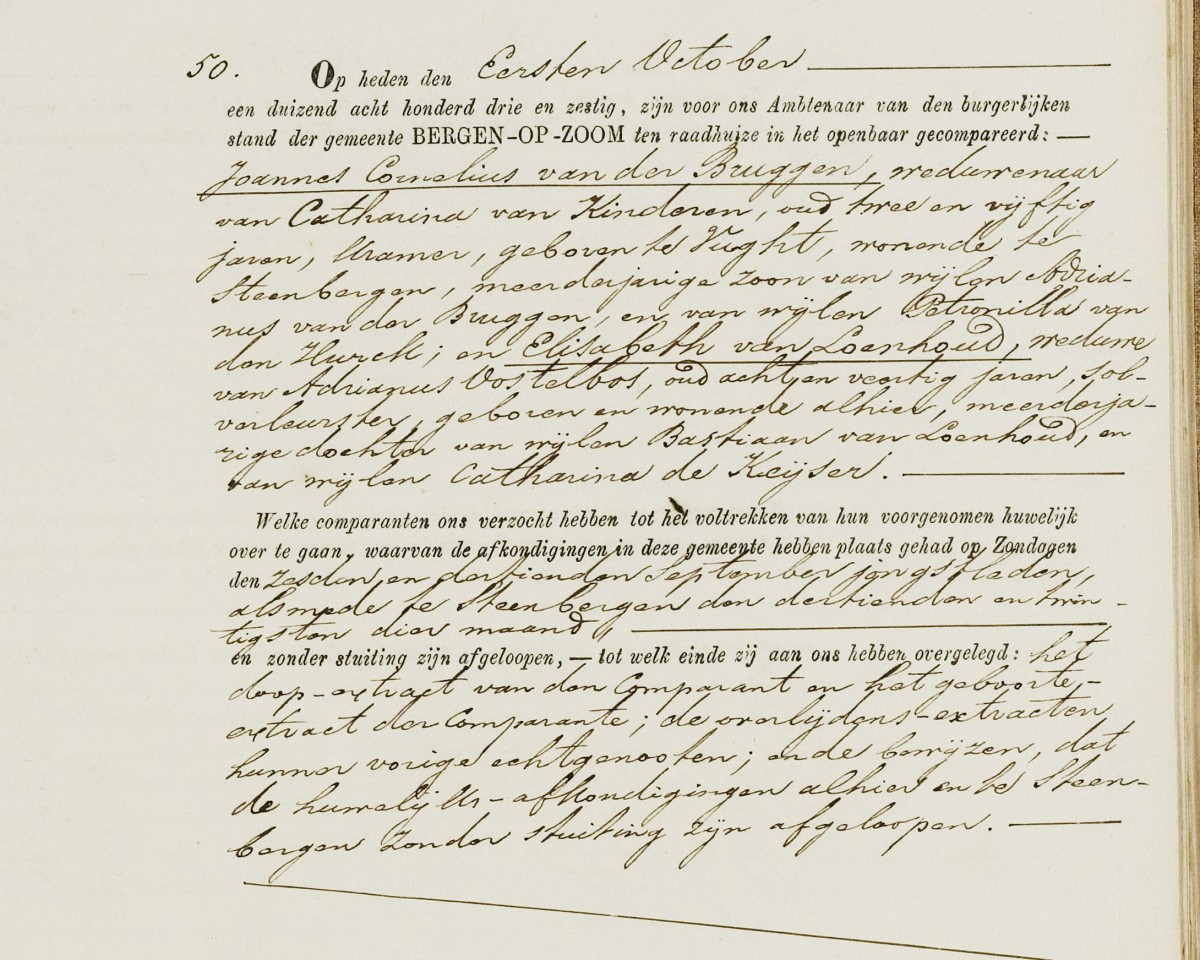 50. Op heden den Eersten October
een duizend acht honderd drie en zestig, zijn voor ons Ambtenaar van den burgerlijken
stand der gemeente BERGEN-OP-ZOOM ten raadhuize in het openbaar gecompareerd: —
Joannes Cornelius van der Bruggen, weduwenaar
van Catharina van Kinderen, oud twee en vijftig
jaren, Kramer, geboren te Vught, wonende te
Steenbergen, meerderjarige zoon van wijlen Adria-
nus van der Bruggen, en van wijlen Petronilla van
den Hurck; en Elisabeth van Loenhoud, weduwe
van Adrianus Vostelbos, oud acht en veertig jaren,
geboren en wonende alhier, meerderja-
rige dochter van wijlen Bastiaan van Loenhoud, en
van wijlen Catharina de Keijser. —
Welke comparanten ons verzocht hebben tot het voltrekken van hun voorgenomen huwelijk
over te gaan, waarvan de afkondigingen in deze gemeente hebben plaats gehad op Zondagen
den Zesden, en dertienden September jongstleden,
alsmede te Steenbergen den dertienden en twin-
tigsten dier maand, —
en zonder stuiting zijn afgeloopen, — tot welk einde zij aan ons hebben overgelegd: het
doop-extract van den Comparant en het geboorte-
extract der Comparante; de overlijdens-extracten
hunner vorige echtgenooten; en de bewijzen, dat
de huwelijks-afkondigingen alhier en te Steen-
bergen zonder stuiting zijn afgeloopen. —